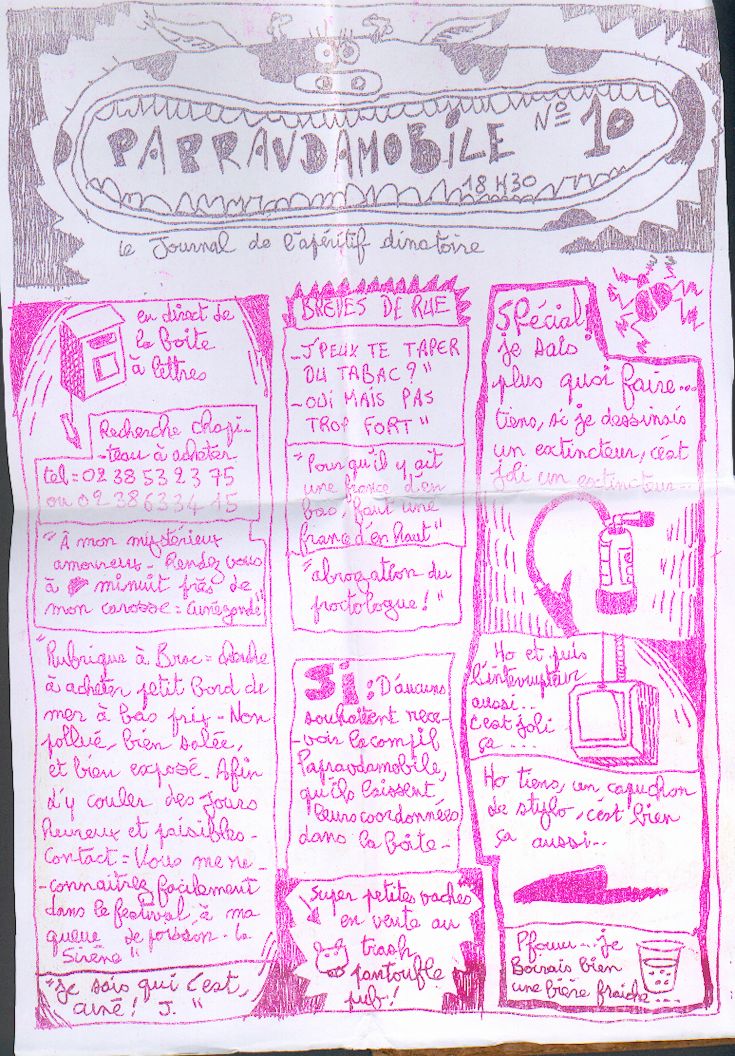 PAPRAVDAMOBILE Nº 10
18H30
Le Journal de l'apéritif dînatoire
en direct de
la boîte
à lettres
Recherche chapi-
-teau à acheter
tel = 02 38 53 23 75
ou 02 38 63 34 15
"À mon mystérieux
amoureux - Rendez vous
à minuit près de
mon carosse = Cunégonde"
"Rubrique à Brac = Cherche
à acheter petit bord de
mer à bas prix - Non
pollué, bien salée,
et bien exposé. Afin
d'y couler des jours
heureux et paisibles -
Contact = Vous me re-
-connaitrez facilement
dans le festival, à ma
queue de poisson - la
Sirène"
"Je sais qui c'est,
ainé ! J. "
BREVES DE RUE
- J'PEUX TE TAPER
DU TABAC ? "
- OUI MAIS PAS
TROP FORT "
"Pour qu'il y ait
une france d'en
bas, faut une
france d'en haut"
"abrogation du
proctologue !"
Si : D'aucuns
souhaitent rece-
-voir la compil
Papravdamobile,
qu'ils laissent
leurs coordonnées
dans la boîte -
Super petites vaches
en vente au
trash
pantoufle
pub !
Spécial
je sais
plus quoi faire...
tiens, si je dessinais
un extincteur, c'est
joli un extincteur...
Ho et puis
l'interrupteur
aussi..
c'est joli
ça ....
Ho tiens, un capuchon
de stylo, c'est bien
ça aussi...
Pfouuu... je
Boirais bien
une bière fraîche...